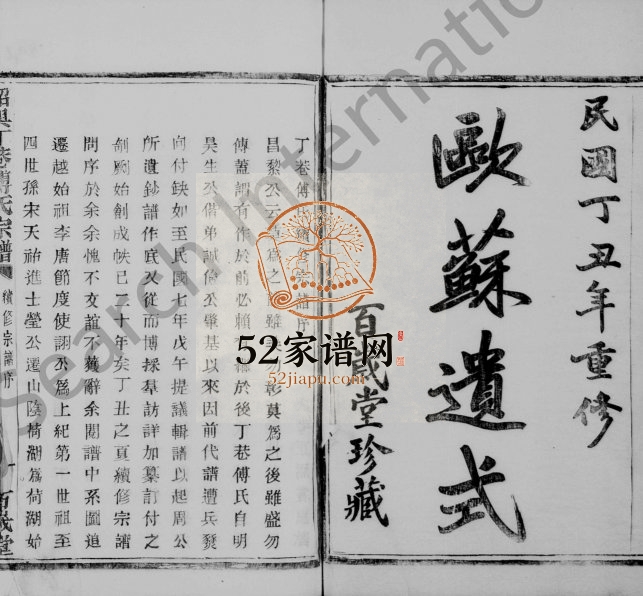 民國丁丑年重修
歐蘇遺式
百歲堂珍藏
丁巷傅氏續修宗譜序
昌黎公云莫爲之前雖 彰莫爲之後雖盛勿
傳蓋謂有作於前必賴 於後丁巷傅氏自明
昊生公偕弟誠倫公肇基以來因前代譜遭兵燹
向付缺如至民國七年戊午提議輯譜以起周公
所遺鈔譜作底又從而博採羣訪詳加纂訂付之
剞劂始創成帙已二十年矣丁丑之夏續修宗譜
問序於余余愧不文誼不獲辭余閱譜中系圖追
遷越始祖李唐節度使詡公爲上紀第一世祖至
四世孫宋天祐進士瑩公遷山陰荷湖爲荷湖始
紹興丁巷傅氏宗譜
續修宗譜序
一
百歲堂
52家谱网
52jiapu.com
Search International